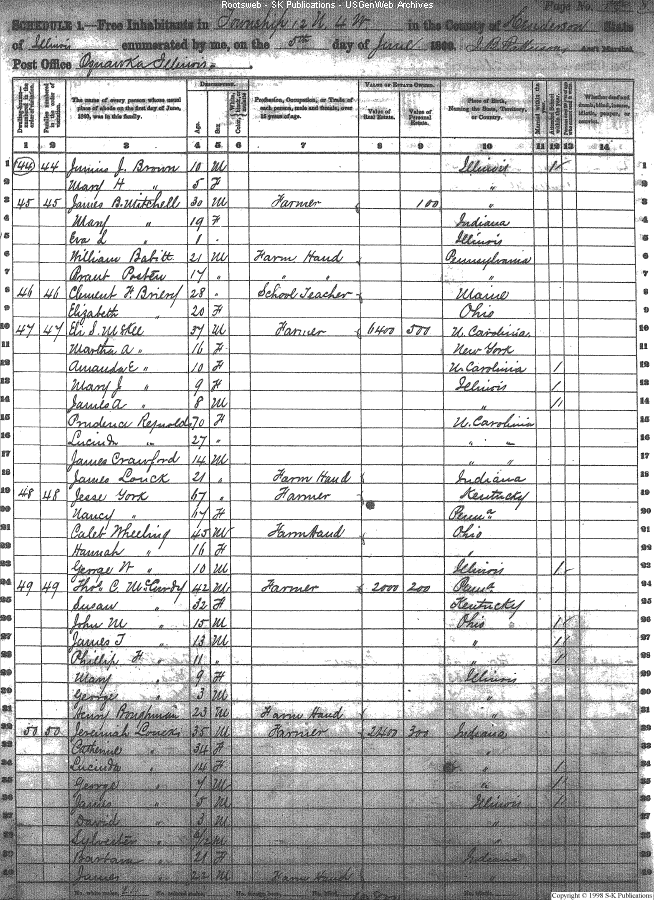 Rootsweb - SK Publications - USGenWeb Archives
Page No.
SCHEDULE 1.—Free Inhabitants in Township 12 N 4 W in the County of Henderson State
of Illinois enumerated by me, on the 5th day of June 1860. Ass't Marshal.
Post Office Oquawka Illinois
The name of every person whose usual place of abode on the first day of June, 1860, was in this family.
DESCRIPTION.
Age. Sex.
Profession, Occupation, or Trade of each person, male and female, over 15 years of age.
VALUE OF ESTATE OWNED.
Value of Real Estate. Value of Personal Estate.
Place of Birth, Naming the State, Territory, or Country.
Whether deaf and dumb, blind, insane, idiotic, pauper, or convict.
1 2 3 4 5 6 7 8 9 10 11 12 13 14
1 44 44 Junius J. Brown 10 M Illinois 1
2 Mary H " 5 F "
3 45 45 James B. Mitchell 30 M Farmer 100 "
4 Mary " 19 F Indiana
5 Eva L " 1 Illinois
6 William Babitt 21 M Farm Hand Pennsylvania
7 Brant Posten 17 " " " "
8 46 46 Clement F. Briery 28 " School Teacher Maine
9 Elizabeth " 20 F Ohio
10 47 47 Eli S. McKee 37 M Farmer 6400 500 N. Carolina
11 Martha A " 16 F New York
12 Amanda E " 10 F N. Carolina 1
13 Mary J " 9 F Illinois 1
14 James A " 8 M " 1
15 Prudence Reynolds 70 F N. Carolina
16 Lucinda " 27 " " "
17 James Crawford 14 M " "
18 James Louck 21 " Farm Hand Indiana
19 48 48 Jesse York 67 " Farmer Kentucky
20 Nancy " 67 F Penna
21 Caleb Wheeling 45 M Farm Hand Ohio
22 Hannah " 16 F "
23 George W " 10 M Illinois 1
24 49 49 Thos. C. McCurdy 42 M Farmer 2000 200 Penna
25 Susan " 32 F Kentucky
26 John M " 15 M Ohio 1
27 James T " 13 M " 1
28 Phillip H " 11 " " 1
29 Mary " 9 F Illinois
30 George " 3 M "
31 Henry Boughman 23 M Farm Hand "
32 50 50 Jeremiah Loucks 35 M Farmer 2400 300 Indiana
33 Catherine " 34 F "
34 Lucinda " 14 F " 1
35 George " 7 M " 1
36 James " 5 M Illinois 1
37 David " 3 M "
38 Sylvester " M "
39 Barbara " 21 F Indiana
40 James " 22 M Farm Hand "
Copyright © 1998 S-K Publications